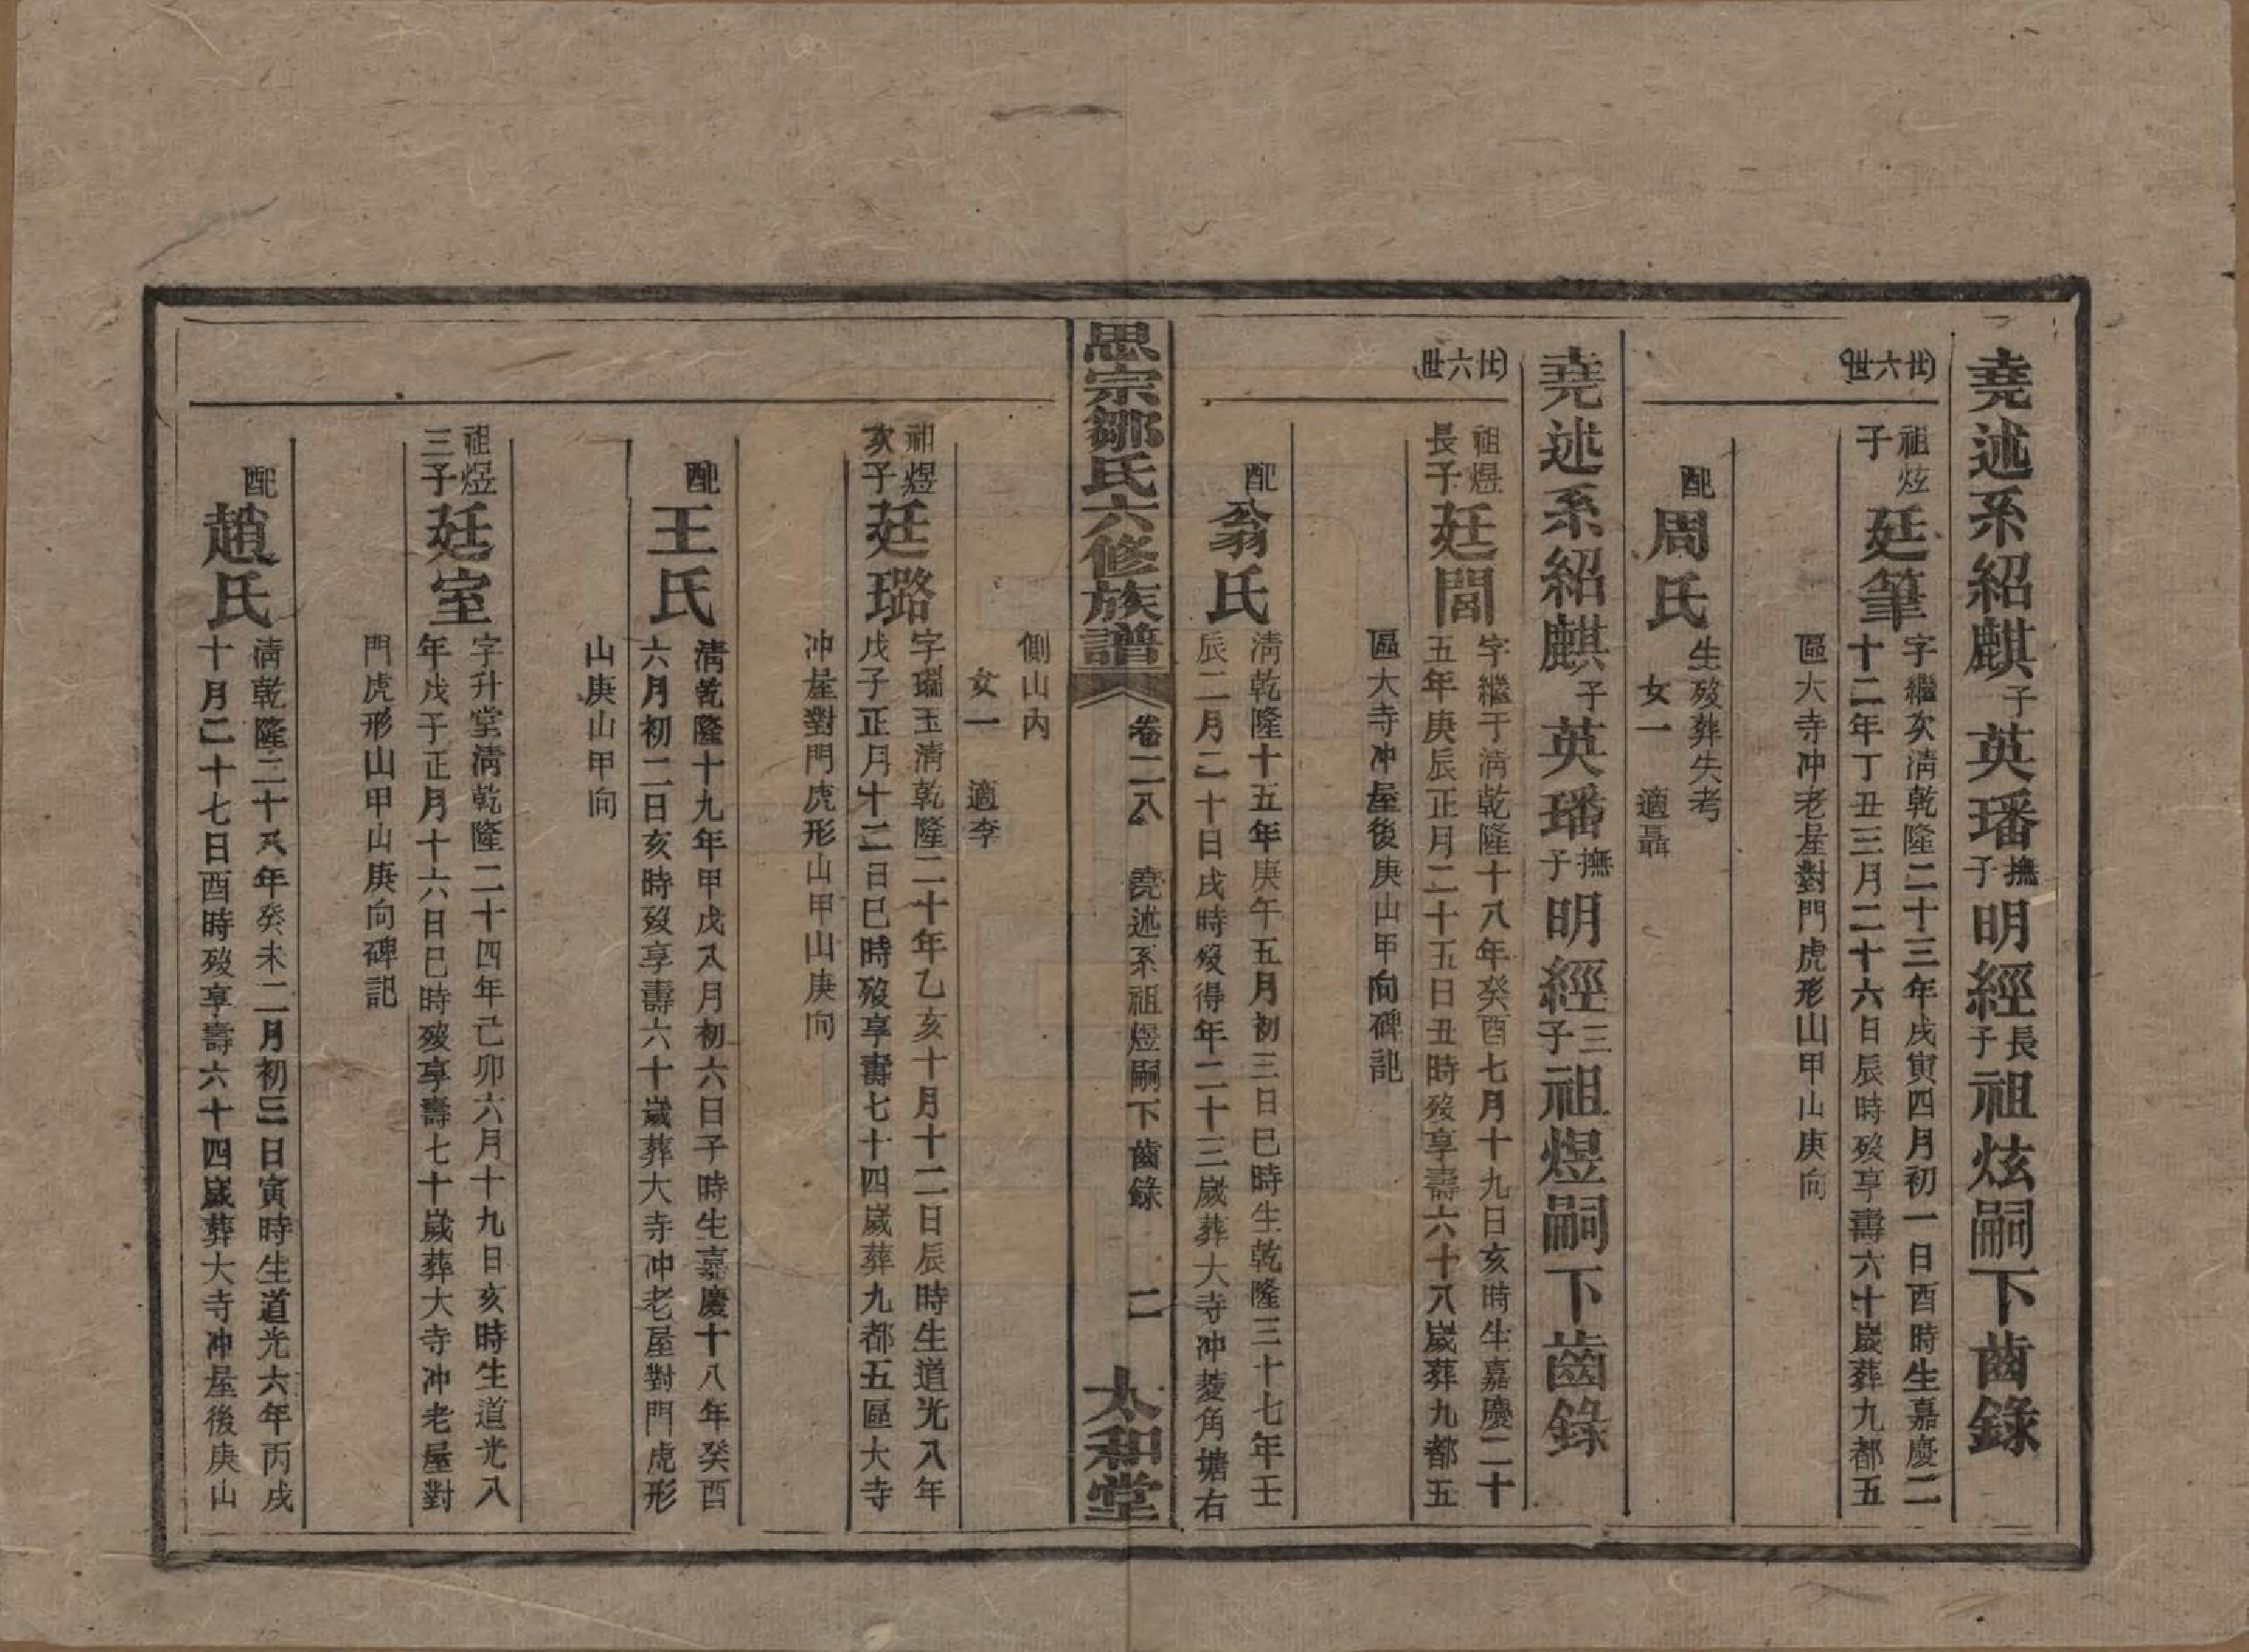 堯述系紹麒子英璠撫子明經長子祖炫嗣下齒錄
廿六世
祖炫子廷筆字繼次淸乾隆二十三年戊寅四月初一日酉時生嘉慶二
十二年丁丑三月二十六日辰時歿享壽六十歲葬九都五
區大寺冲老屋對門虎形山甲山庚向
配周氏生歿葬失考
女一 適聶
堯述系紹麒子英璠撫子明經三子祖煜嗣下齒錄
廿六世
祖煜長子廷閭字繼于淸乾隆十八年癸酉七月十九日亥時生嘉慶二十
五年庚辰正月二十五日丑時歿享壽六十八歲葬九都五
區大寺冲屋後庚山甲向碑記
配翁氏淸乾隆十五年庚午五月初三日巳時生乾隆三十七年壬
辰二月二十日戌時歿得年二十三歲葬大寺冲菱角塘右
思宗鄒氏六修族譜 卷二八 堯述系祖煜嗣下齒錄 二 太和堂
側山內
女一 適李
祖煜次子廷璐字瑞玉淸乾隆二十年乙亥十月十二日辰時生道光八年
戊子正月十二日巳時歿享壽七十四歲葬九都五區大寺
冲屋對門虎形山甲山庚向
配王氏淸乾隆十九年甲戌八月初六日子時生嘉慶十八年癸酉
六月初二日亥時歿享壽六十歲葬大寺冲老屋對門虎形
山庚山甲向
祖煜三子廷室字升堂淸乾隆二十四年己卯六月十九日亥時生道光八
年戊子正月十六日巳時歿享壽七十歲葬大寺冲老屋對
門虎形山甲山庚向碑記
配趙氏淸乾隆二十八年癸未二月初三日寅時生道光六年丙戌
十月二十七日酉時歿享壽六十四歲葬大寺冲屋後庚山